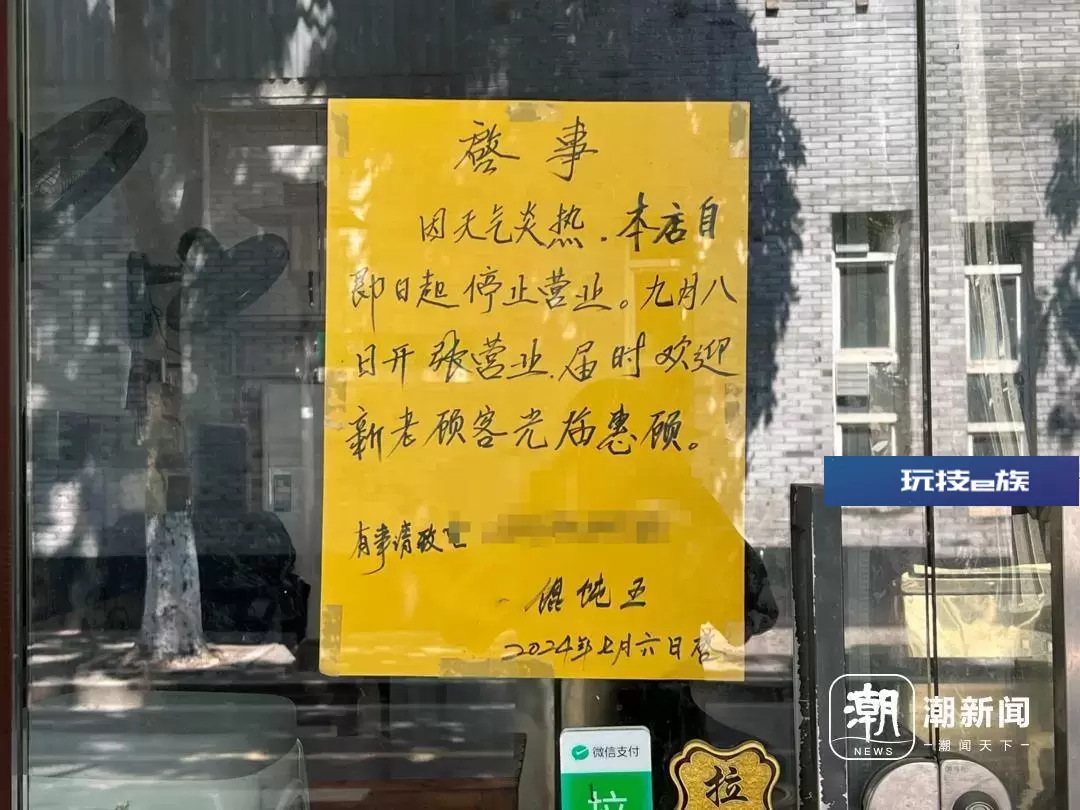 启事
因天气炎热.本店自
即日起停止营业。九月八
日开张营业.届时欢迎
新老顾客光临惠顾。
有事请致电
馄饨王
2024年七月六日启
玩技e族
潮
NEWS
潮新闻
潮闻天下
微信支付
拉
拉